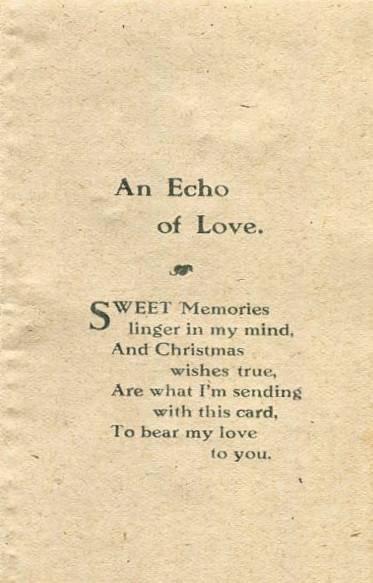 An Echo
of Love.
SWEET Memories
linger in my mind,
And Christmas
wishes true,
Are what I'm sending
with this card,
To bear my love
to you.